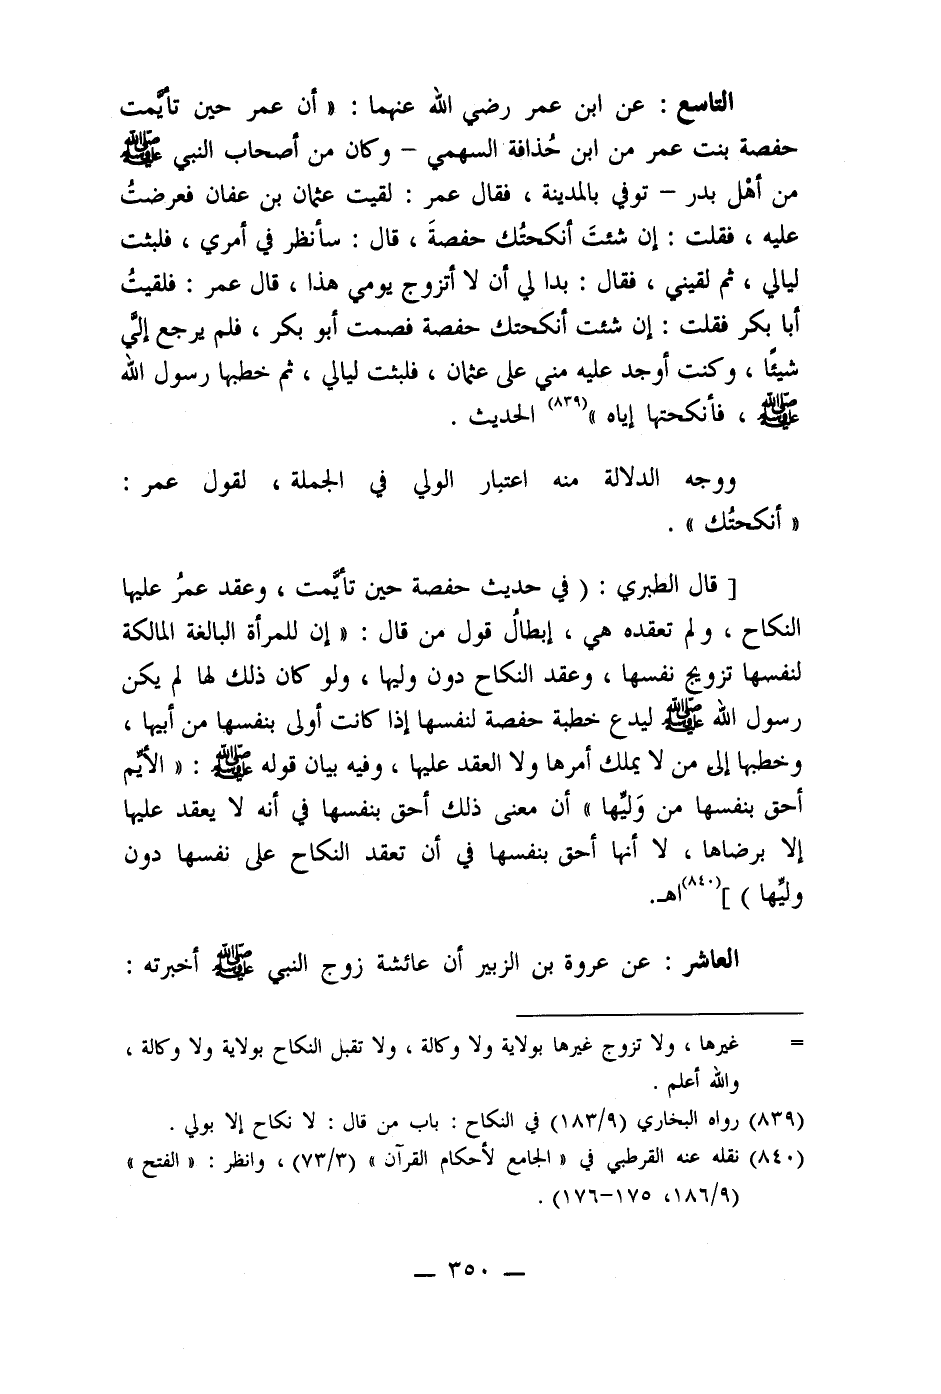 التاسع : عن ابن عمر رضي الله عنهما : « أن عمر حين تأيَّمت
حفصة بنت عمر من ابن حُذافة السهمي – وكان من أصحاب النبي ﷺ
من أهْل بدر – توفي بالمدينة ، فقال عمر : لقيت عثمان بن عفان فعرضتُ
عليه ، فقلت : إن شئتَ أنكحتُك حفصةَ ، قال : سأنظر في أمري ، فلبثت
ليالي ، ثم لقيني ، فقال : بدا لي أن لا أتزوج يومي هذا ، قال عمر : فلقيتُ
أبا بكر فقلت : إن شئت أنكحتك حفصة فصمت أبو بكر ، فلم يرجع إليَّ
شيئًا ، وكنت أوجد عليه مني على عثمان ، فلبثت ليالي ، ثم خطبها رسول الله
ﷺ ، فأنكحتها إياه »(٨٣٩) الحديث .
ووجه الدلالة منه اعتبار الولي في الجملة ، لقول عمر :
« أنكحتُك » .
[ قال الطبري : ( في حديث حفصة حين تأيَّمت ، وعقد عمرُ عليها
النكاح ، ولم تعقده هي ، إبطالُ قول من قال : « إن للمرأة البالغة المالكة
لنفسها تزويج نفسها ، وعقد النكاح دون وليها ، ولو كان ذلك لها لم يكن
رسول الله ﷺ ليدع خطبة حفصة لنفسها إذا كانت أولى بنفسها من أبيها ،
وخطبها إلى من لا يملك أمرها ولا العقد عليها ، وفيه بيان قوله ﷺ : « الأيِّم
أحق بنفسها من وَليِّها » أن معنى ذلك أحق بنفسها في أنه لا يعقد عليها
إلا برضاها ، لا أنها أحق بنفسها في أن تعقد النكاح على نفسها دون
وليِّها ) ](٨٤٠)اهـ.
العاشر : عن عروة بن الزبير أن عائشة زوج النبي ﷺ أخبرته :
= غيرها ، ولا تزوج غيرها بولاية ولا وكالة ، ولا تقبل النكاح بولاية ولا وكالة ،
والله أعلم .
(٨٣٩) رواه البخاري (١٨٣/٩) في النكاح : باب من قال : لا نكاح إلا بولي .
(٨٤٠) نقله عنه القرطبي في « الجامع لأحكام القرآن » (٧٣/٣) ، وانظر : « الفتح »
(١٨٦/٩، ١٧٥–١٧٦) .
— ٣٥٠ —